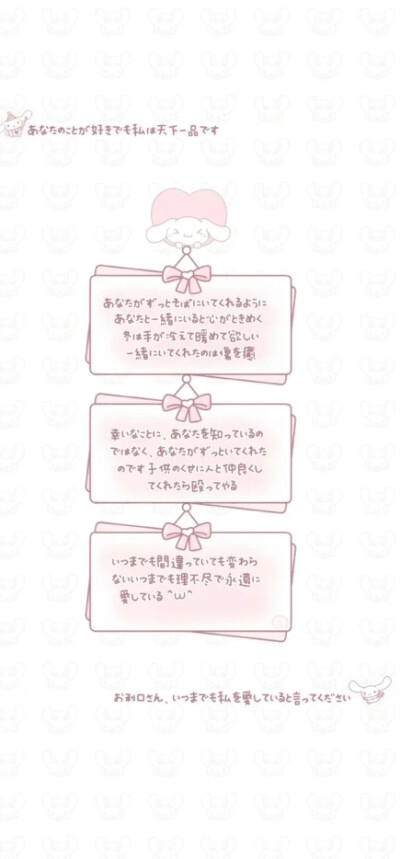 あなたのことが好きでも私は天下一品です
あなたがずっとそばにいてくれるように
あなたと一緒にいると心がときめく
冬は手が冷えて暖めて欲しい
一緒にいてくれたのは傷を癒
幸いなことに、あなたを知っているの
ではなく、あなたがずっといてくれた
のです子供のくせに人と仲良くし
てくれたら殴ってやる
いつまでも間違っていても変わら
ないいつまでも理不尽で永遠に
愛している ^ω^
お利口さん、いつまでも私を愛していると言ってください